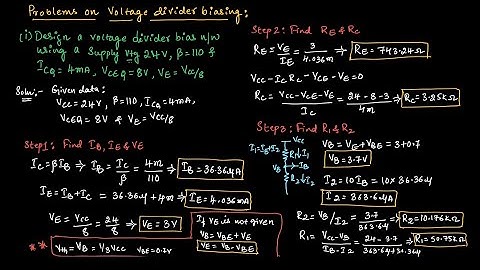 Problems on Voltage divider biasing:
(i) Design a voltage divider bias n/w
using a supply Vtg 24V, β=110 &
ICQ = 4mA, VCEQ = 8V, VE = VCC/8
Soln:- Given data:
VCC = 24V, β=110, ICQ = 4mA,
VCEQ = 8V & VE = VCC/8
Step1: Find IB, IE & VE
IC = βIB ⇒ IB = IC/β = 4m/110 ⇒ IB = 36.36μA
IE = IB + IC = 36.36μ + 4m ⇒ IE = 4.036mA
VE = VCC/8 = 24/8 ⇒ VE = 3V
If VE is not given
VB = VBE + VE
VE = VB - VBE
** VTH = VB = 1/3 VCC VBE = 0.7V
Step2: Find RE & RC
RE = VE/IE = 3/4.036m ⇒ RE = 743.24Ω
VCC - ICRC - VCE - VE = 0
RC = VCC - VCE - VE/IC = 24-8-3/4m ⇒ RC = 3.25kΩ
Step3: Find R1 & R2
VCC
I1 = IB + I2
R1 ↓I1
VB → IB
R2 ↓I2
VB = VE + VBE = 3 + 0.7
VB = 3.7V
I2 = 10IB = 10 × 36.36μ
I2 = 363.6μA
R2 = VB/I2 = 3.7/363.6μ ⇒ R2 = 10.176kΩ
R1 = VCC - VB/IB + I2 = 24 - 3.7/363.6μ+36.36μ ⇒ R1 = 50.75kΩ